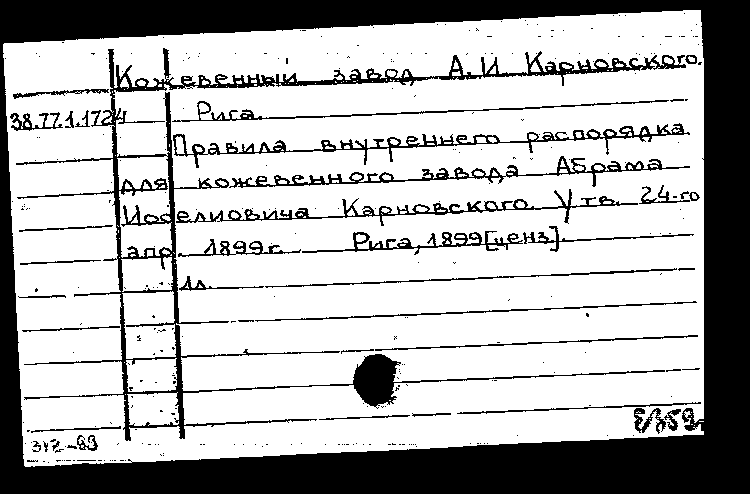 Кожевенный завод А.И Карновского.
38.77.1.1724 Рига.
Правила внутреннего распорядка
для кожевенного завода Абрама
Иоселиовича Карновского. Утв. 24-го
апр. 1899г. Рига, 1899[ценз].
1л.
312-89